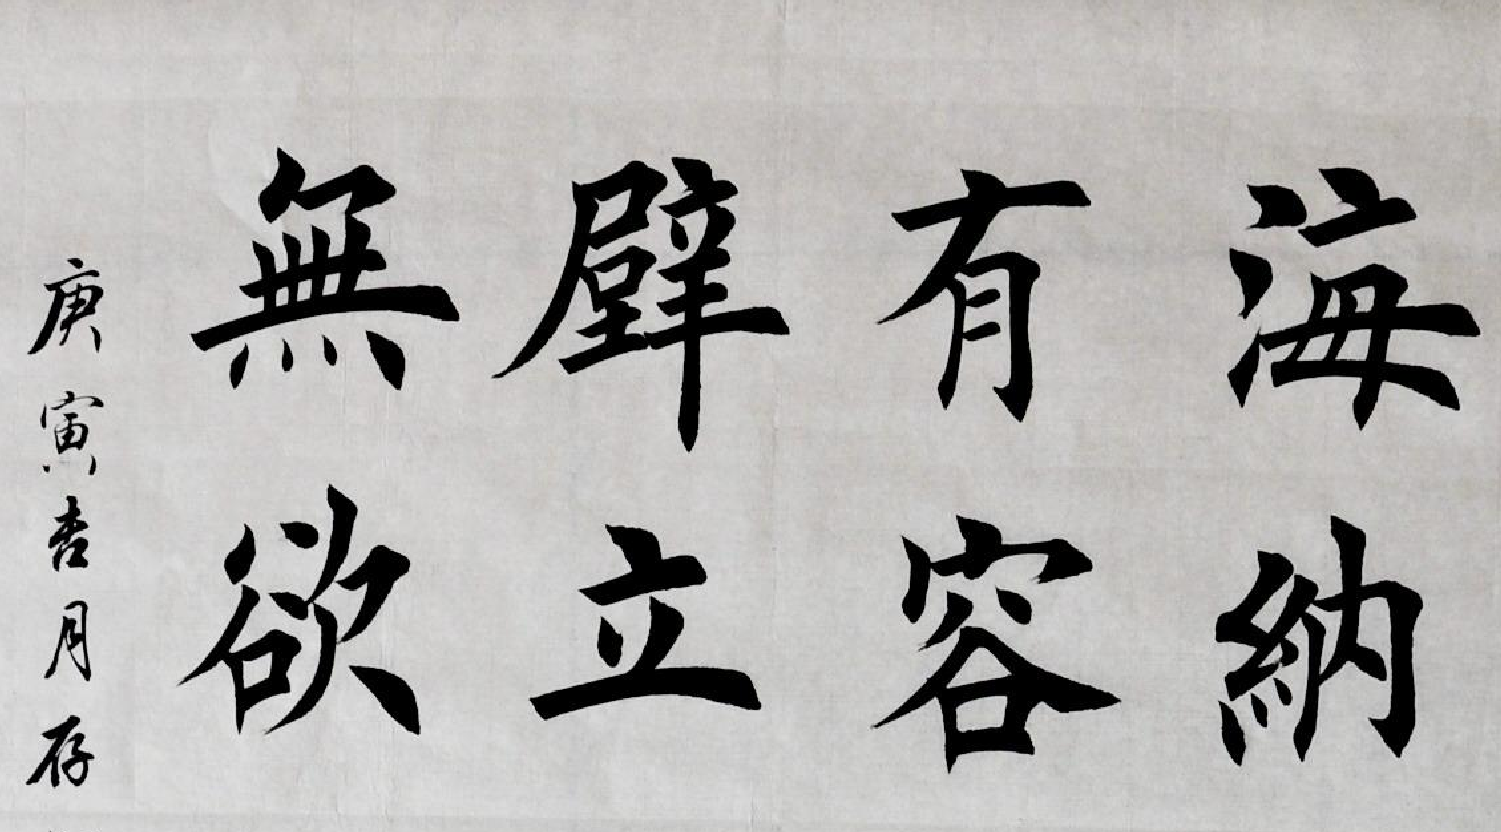 海納
有容
壁立
無欲
庚寅杏月存